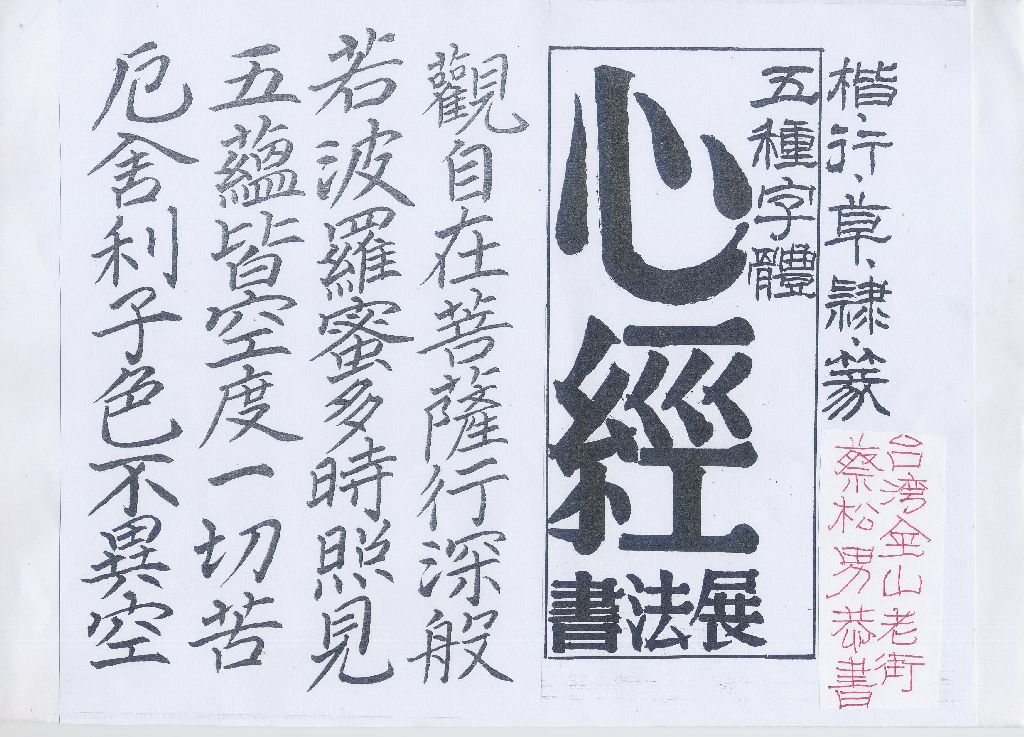 楷、行、草、隷、篆
五種字體
心經
書法展
台湾金山老街
蔡松男恭書
觀自在菩薩行深般
若波羅蜜多時照見
五蘊皆空度一切苦
厄舍利子色不異空